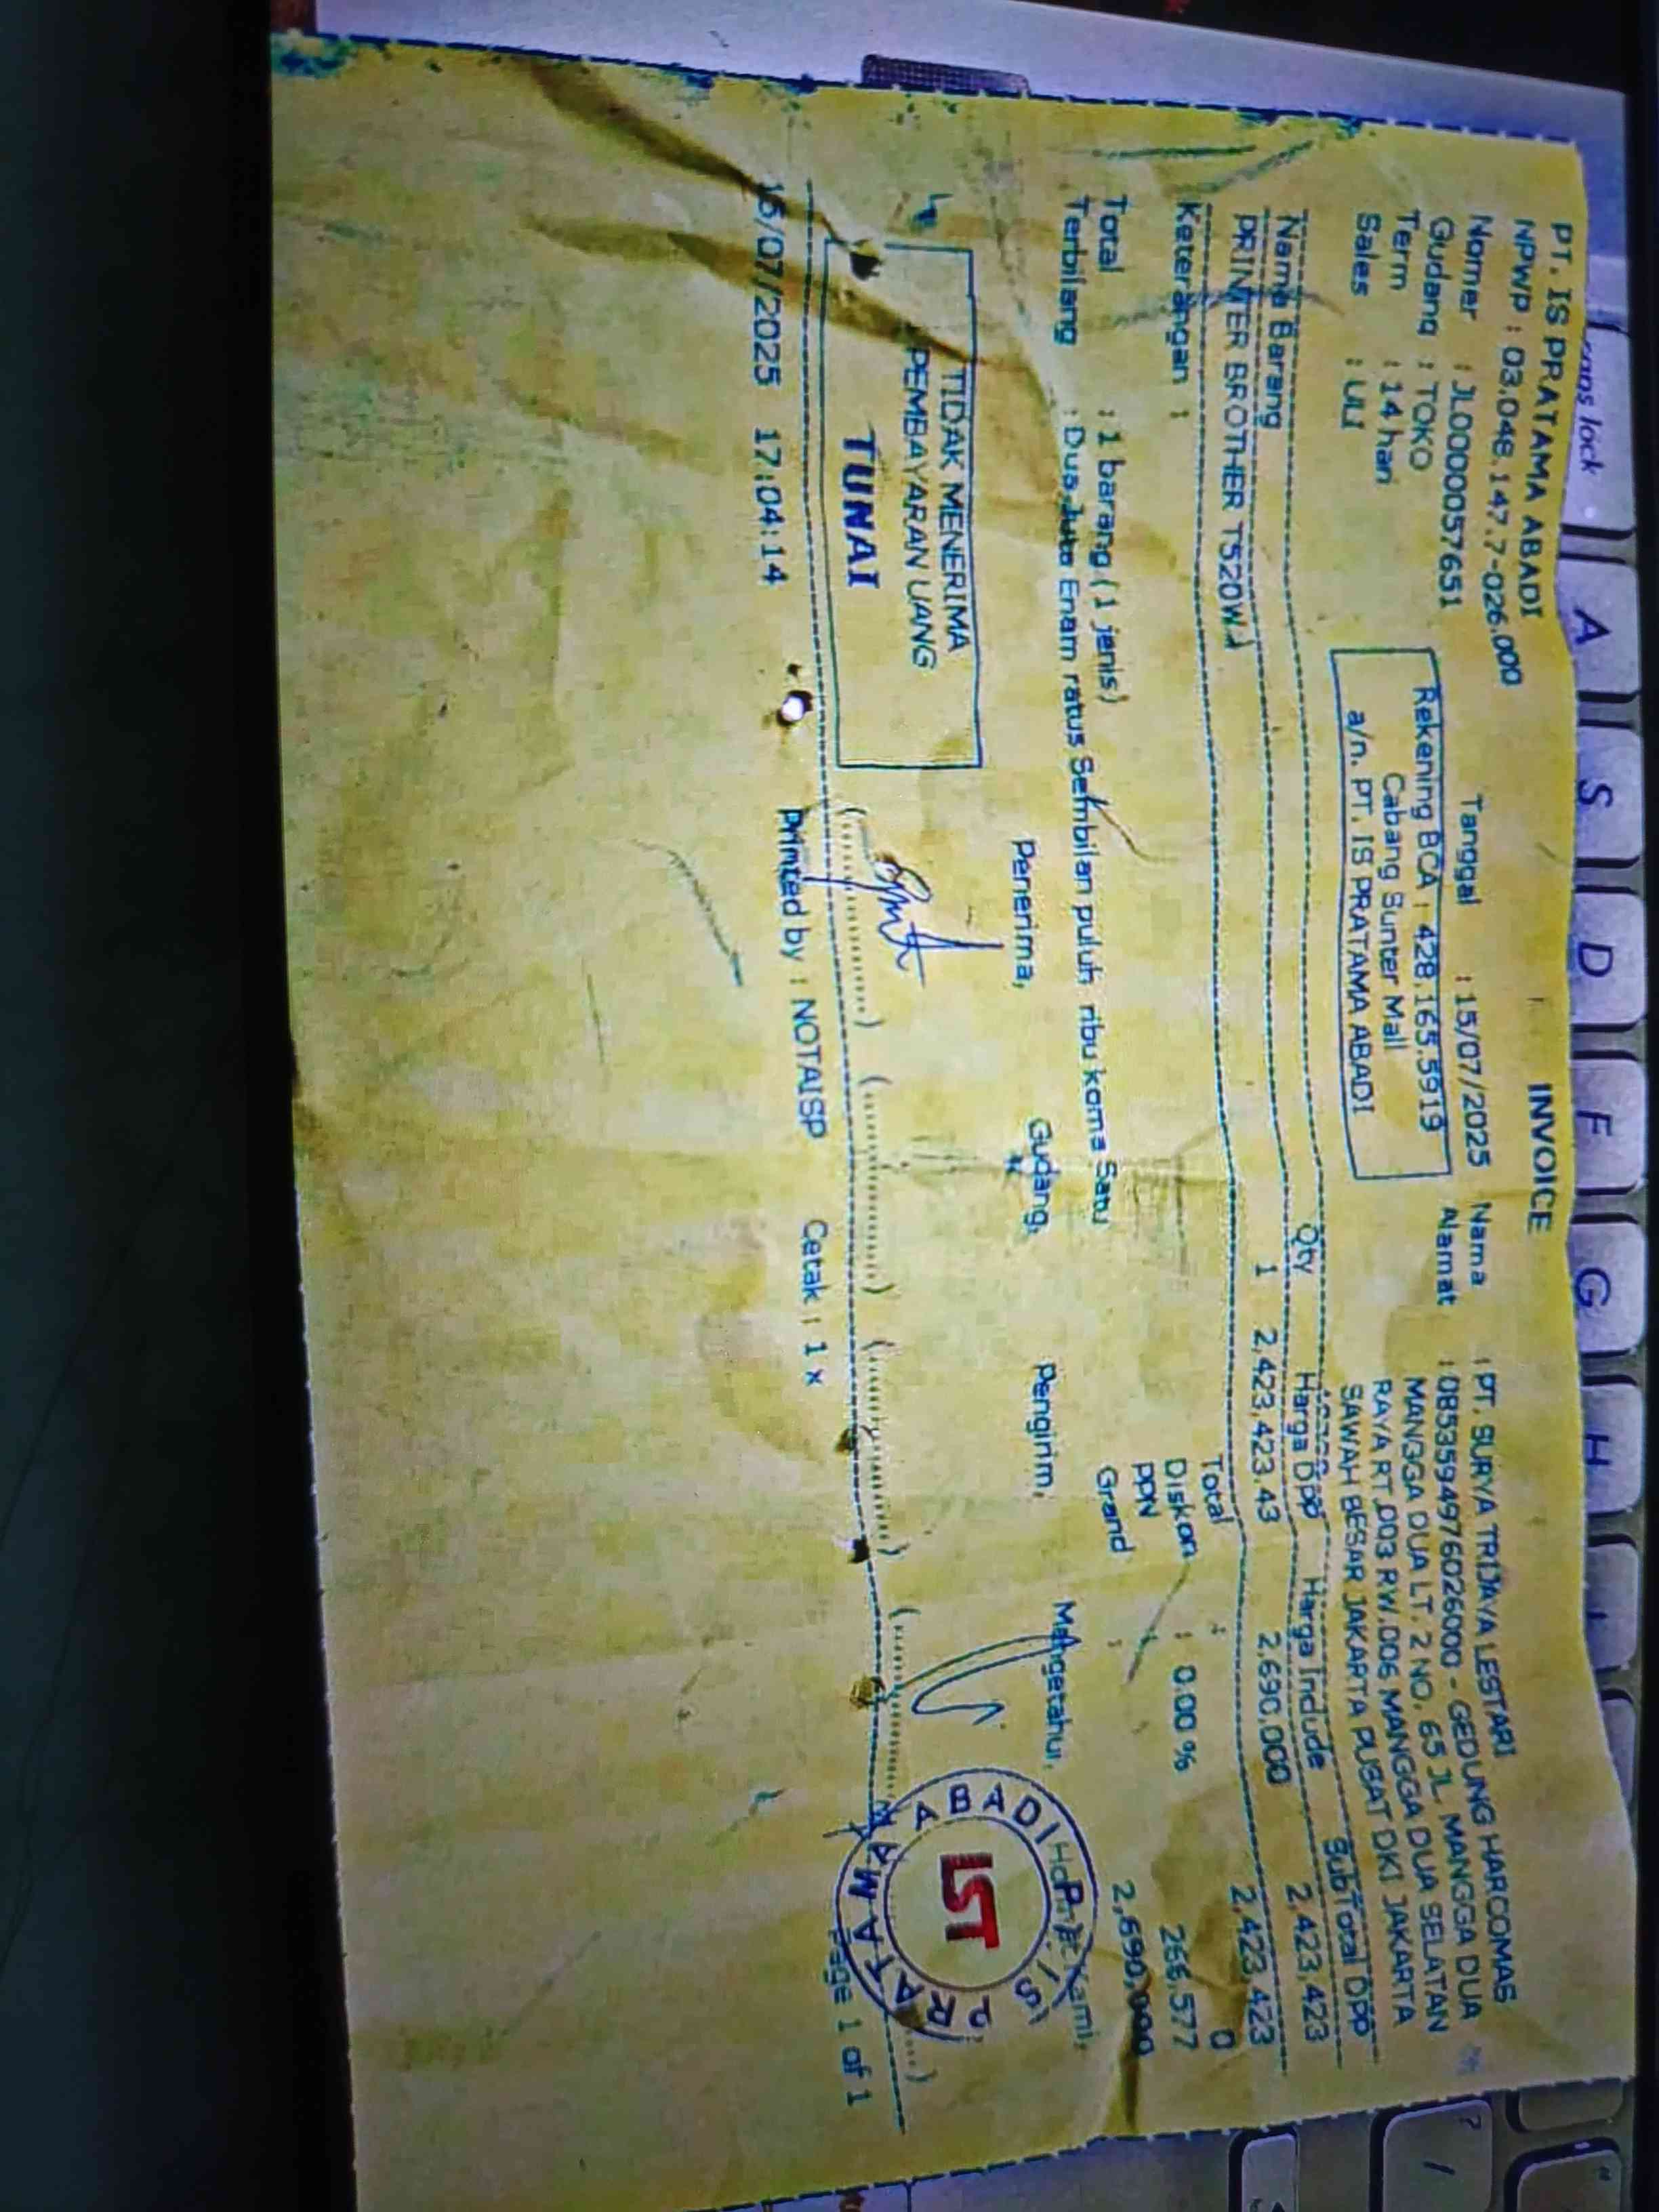 INVOICE
PT. IS PRATAMA ABADI
NPWP : 03.048.147.7-026.000
Nomer : JL0000057651
Gudang : TOKO
Term : 14 hari
Sales : ULI
Tanggal : 15/07/2025
Rekening BCA : 428.165.5919
Cabang Sunter Mall
a/n. PT. IS PRATAMA ABADI
Nama : PT. SURYA TRIJAYA LESTARI
Alamat : 0853594976026000 - GEDUNG HARCOMAS
MANGGA DUA LT. 2 NO. 65 JL. MANGGA DUA
RAYA RT.003 RW.006 MANGGA DUA SELATAN
SAWAH BESAR JAKARTA PUSAT DKI JAKARTA
Nama Barang Qty Harga Dpp Harga Include SubTotal Dpp
PRINTER BROTHER T520W 1 2,423,423.43 2,690,000 2,423,423
Keterangan :
Total : 2,423,423
Diskon : 0.00 % 0
PPN : 266,577
Grand : 2,690,000
Total : 1 barang (1 jenis)
Terbilang : Dua Juta Enam ratus Sembilan puluh ribu koma Satu
TIDAK MENERIMA
PEMBAYARAN UANG
TUNAI
Penerima, Gudang, Pengirim, Mengetahui, Hormat Kami,
PT. IS PRATAMA ABADI
IST
15/07/2025 17:04:14 Printed by : NOTAISP Cetak : 1 x Page 1 of 1
caps lock
A
S
D
F
G
H